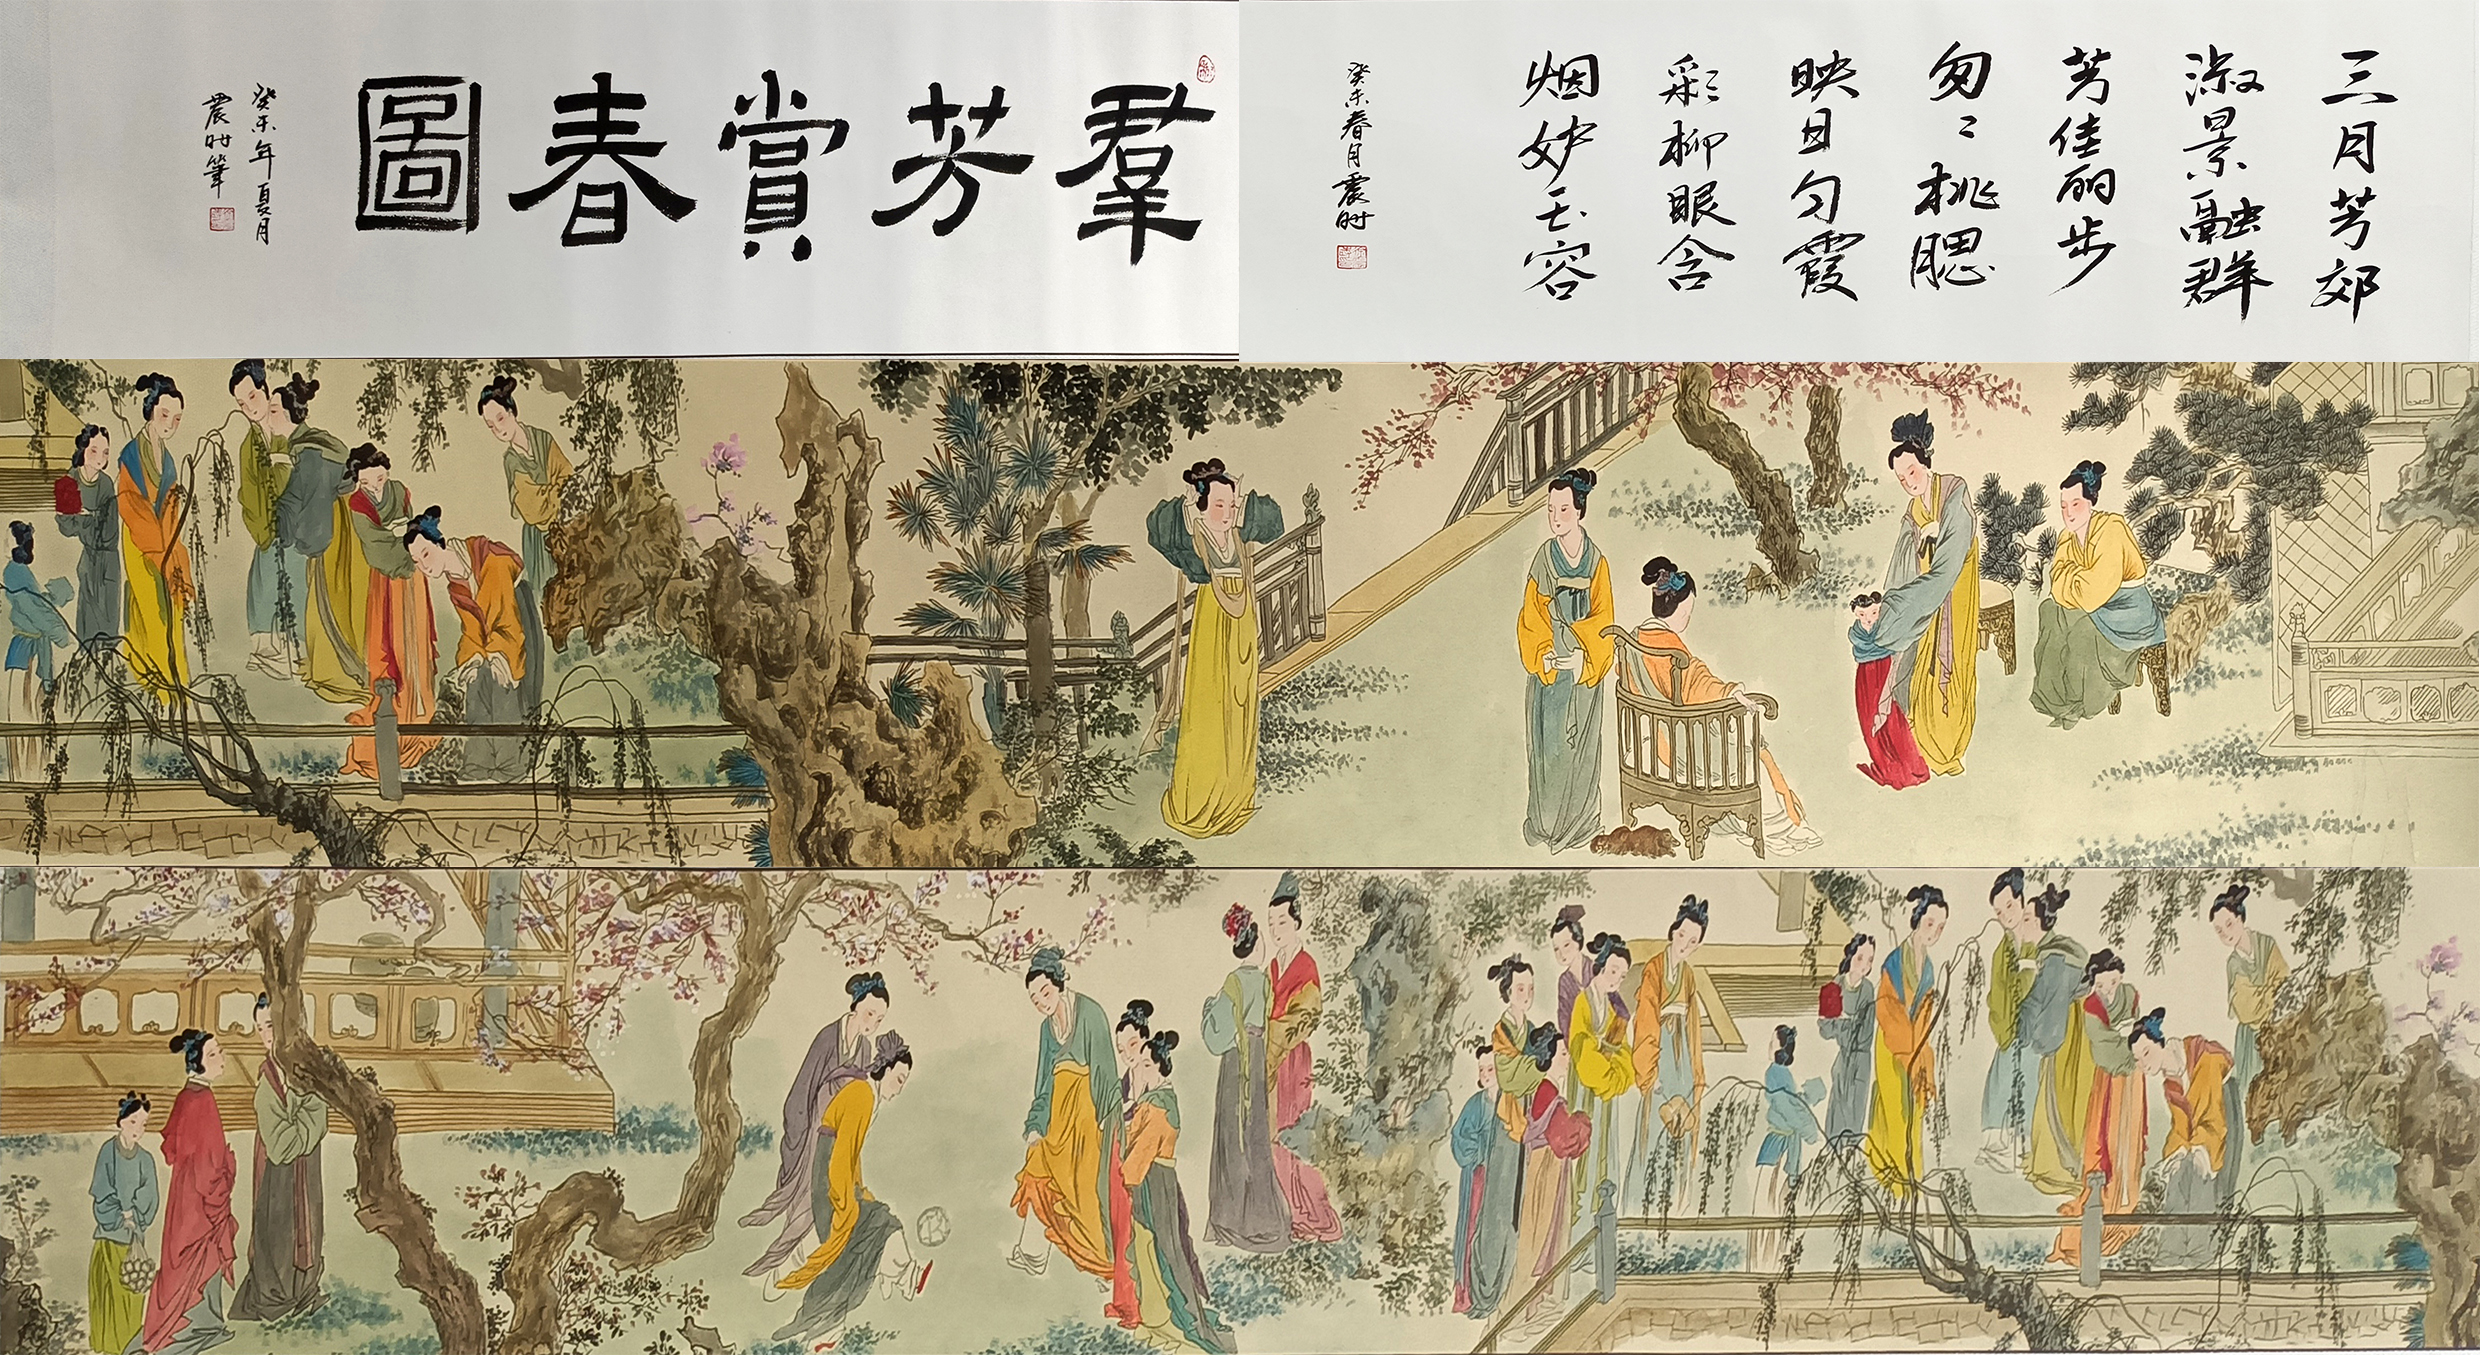 羣芳賞春圖
癸未年夏月
震时筆
三月芳郊
淑景融群
芳佳丽步
匆〻桃腮
映日匀霞
彩柳眼含
烟妒玉容
癸未春月震时